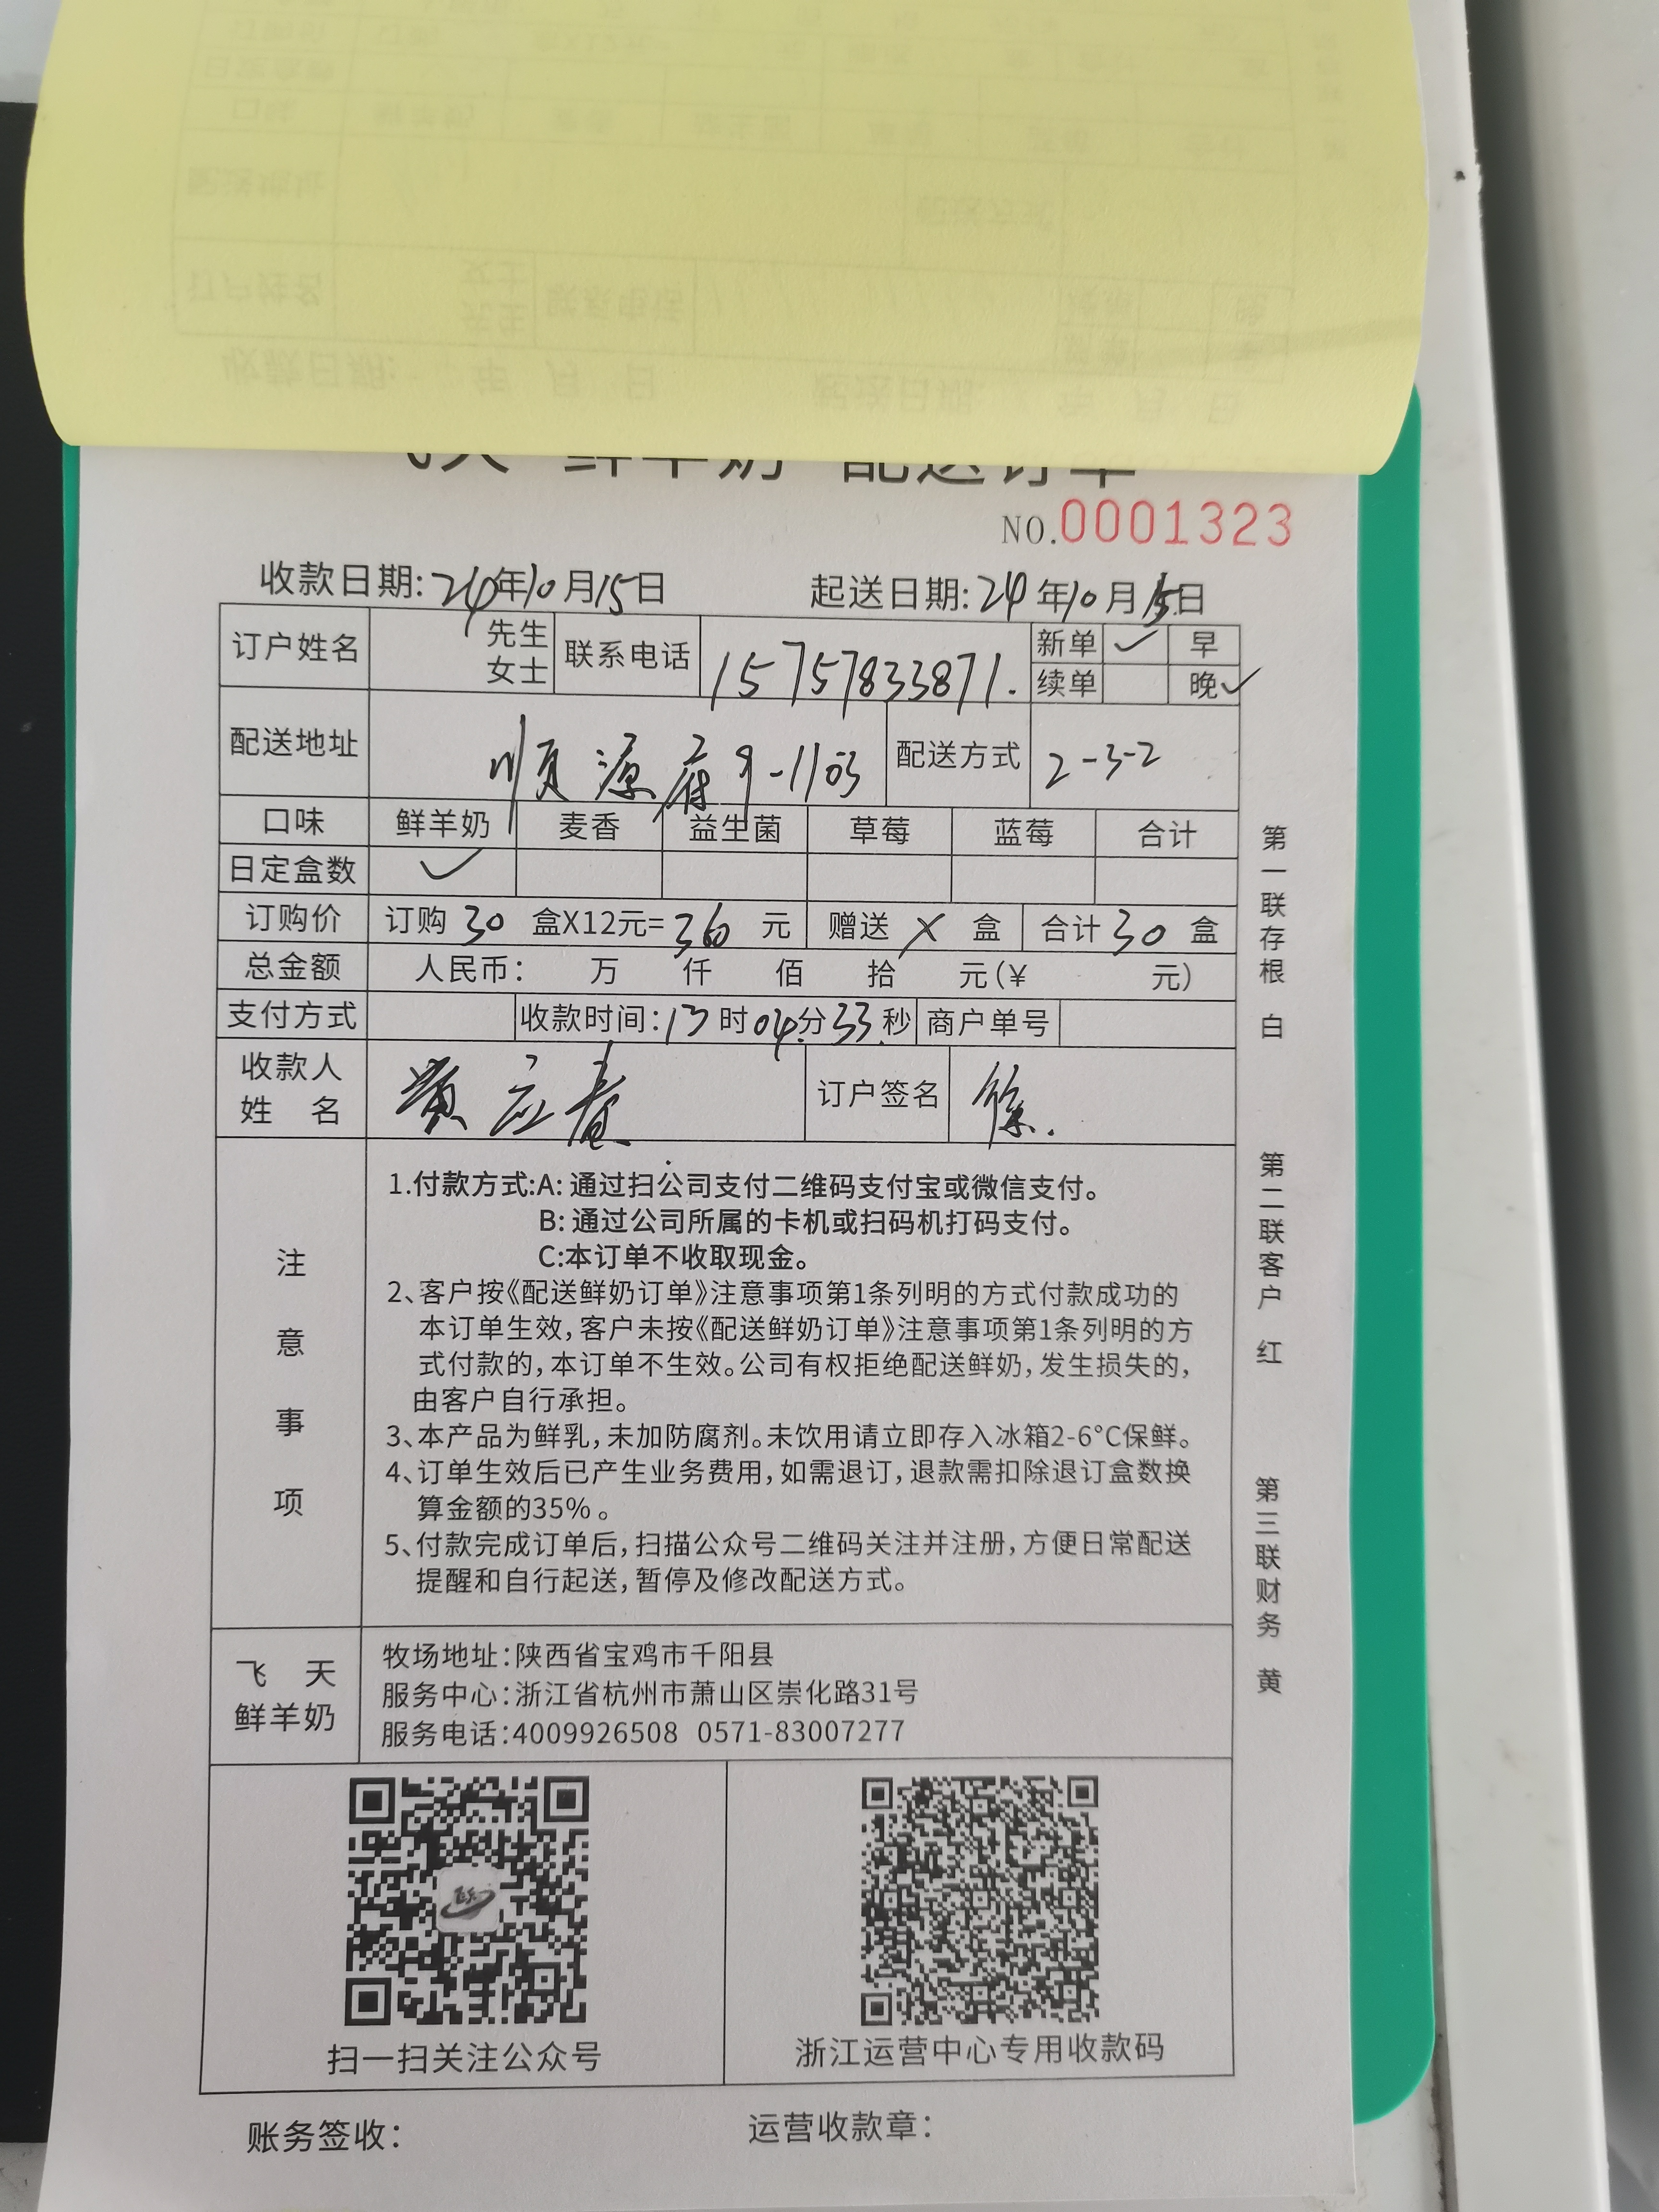 飞天 鲜羊奶 配送订单
NO.0001323
收款日期: 24年10月15日 起送日期: 24年10月15日
订户姓名 先生 女士 联系电话 15757833871. 新单 ✓ 早
续单 晚✓
配送地址 顺源府9-1103 配送方式 2-3-2
口味 鲜羊奶 麦香 益生菌 草莓 蓝莓 合计
日定盒数 ✓
订购价 订购 30 盒X12元=360 元 赠送 X 盒 合计 30 盒
总金额 人民币: 万 仟 佰 拾 元(¥ 元)
支付方式 收款时间:13时04分33秒 商户单号
收款人姓名 黄应春 订户签名 徐.
注意事项
1.付款方式:A: 通过扫公司支付二维码支付宝或微信支付。
B: 通过公司所属的卡机或扫码机打码支付。
C:本订单不收取现金。
2、客户按《配送鲜奶订单》注意事项第1条列明的方式付款成功的
本订单生效,客户未按《配送鲜奶订单》注意事项第1条列明的方
式付款的,本订单不生效。公司有权拒绝配送鲜奶,发生损失的,
由客户自行承担。
3、本产品为鲜乳,未加防腐剂。未饮用请立即存入冰箱2-6°C保鲜。
4、订单生效后已产生业务费用,如需退订,退款需扣除退订盒数换
算金额的35%。
5、付款完成订单后,扫描公众号二维码关注并注册,方便日常配送
提醒和自行起送,暂停及修改配送方式。
飞天
鲜羊奶
牧场地址:陕西省宝鸡市千阳县
服务中心:浙江省杭州市萧山区崇化路31号
服务电话:4009926508 0571-83007277
扫一扫关注公众号 浙江运营中心专用收款码
账务签收: 运营收款章:
第一联存根 白
第二联客户 红
第三联财务 黄